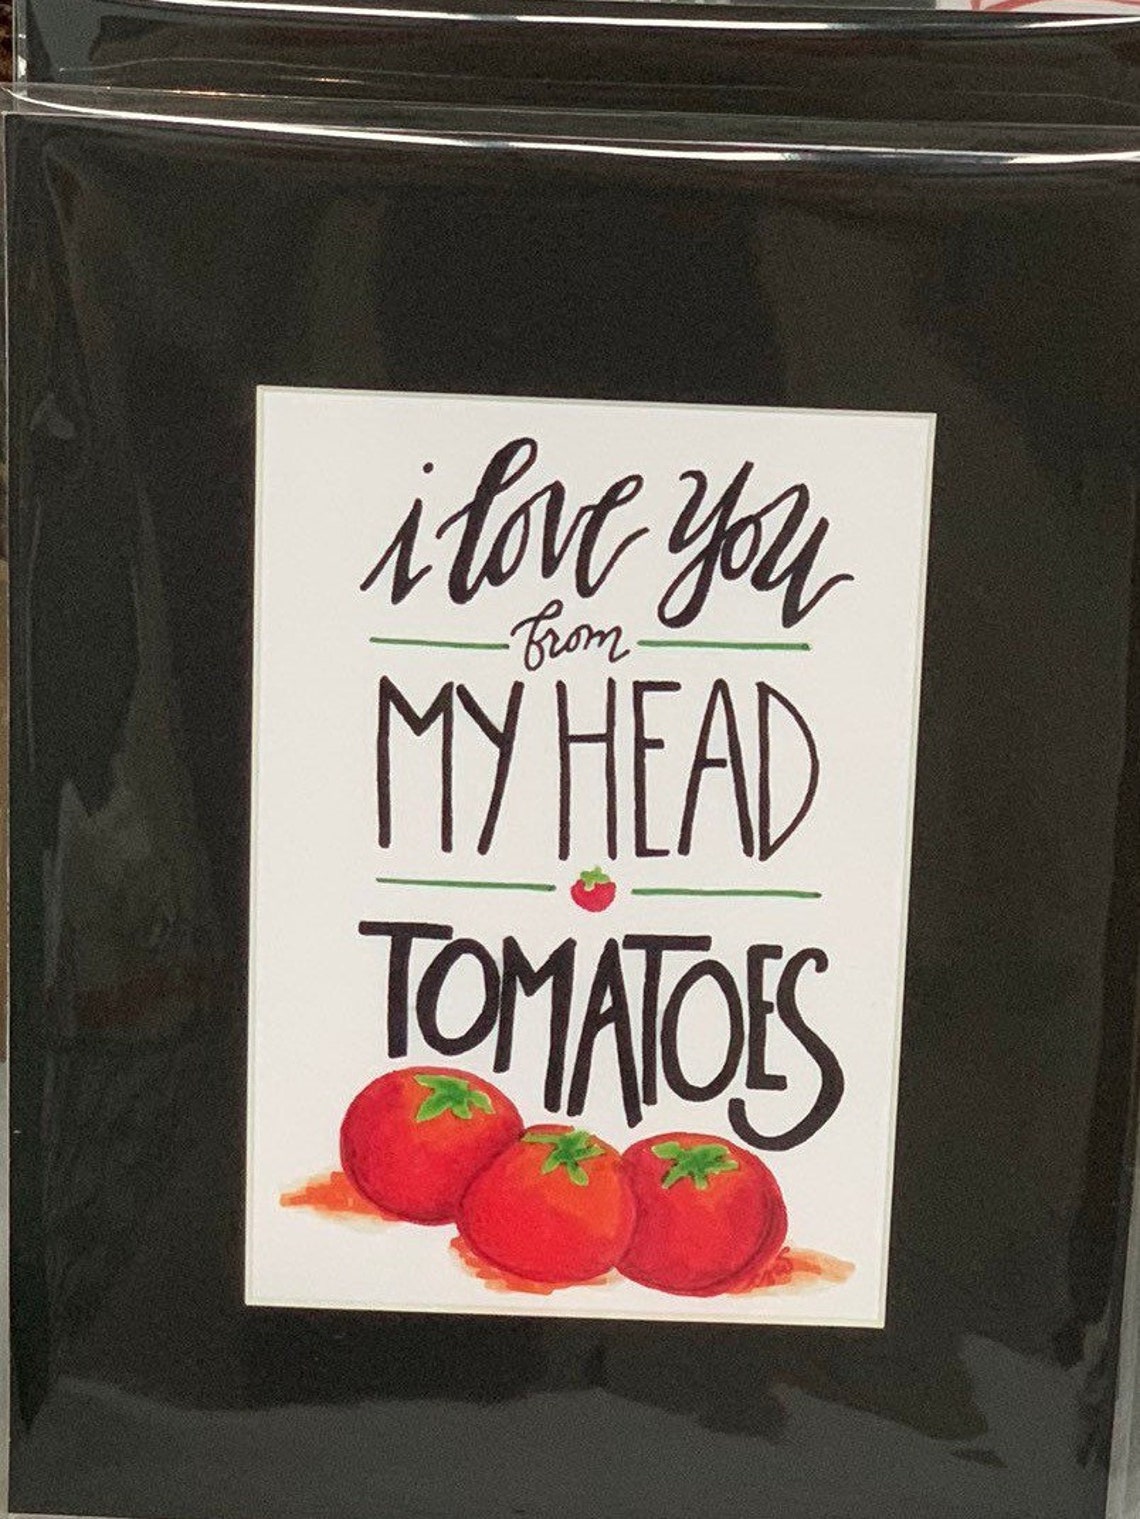 i love you
from
MY HEAD
TOMATOES